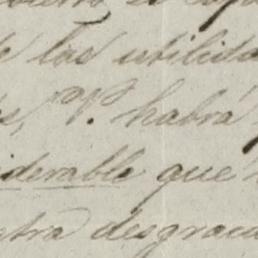 las utilida
V. habrá
iderable que
tra desgracia